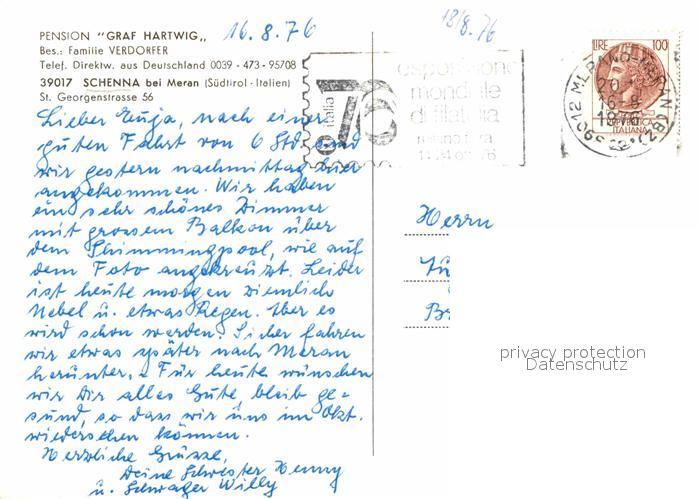 PENSION "GRAF HARTWIG„ 16.8.76
Bes.: Familie VERDORFER
Telef. Direktw. aus Deutschland 0039 - 473 - 95708
39017 SCHENNA bei Meran (Südtirol - Italien)
St. Georgenstrasse 56
Lieber nach einer
guten Fahrt von 6 Std sind
wir gestern nachmittag hier
angekommen. Wir haben
ein sehr schönes Zimmer
mit grossem Balkon über
dem Swimmingpool, wie auf
dem Foto angekreuzt. Leider
ist heute morgen ziemlich
Nebel u. etwas Regen. Aber es
wird schon werden. Sicher fahren
wir etwas später nach Meran
herunter. – Für heute wünschen
wir Dir alles Gute, bleib ge=
sund, so dass wir uns im Okt.
wiedersehen können.
Herzliche Grüsse,
Deine Schwester Henny
u. Schwager Willy
18/8.76
italia 76
esposizione
mondiale
di filatelia
LIRE 100
ITALIANA
39012 MERANO-MERAN (BZ)
20
16-8
1976
Herrn
privacy protection
Datenschutz